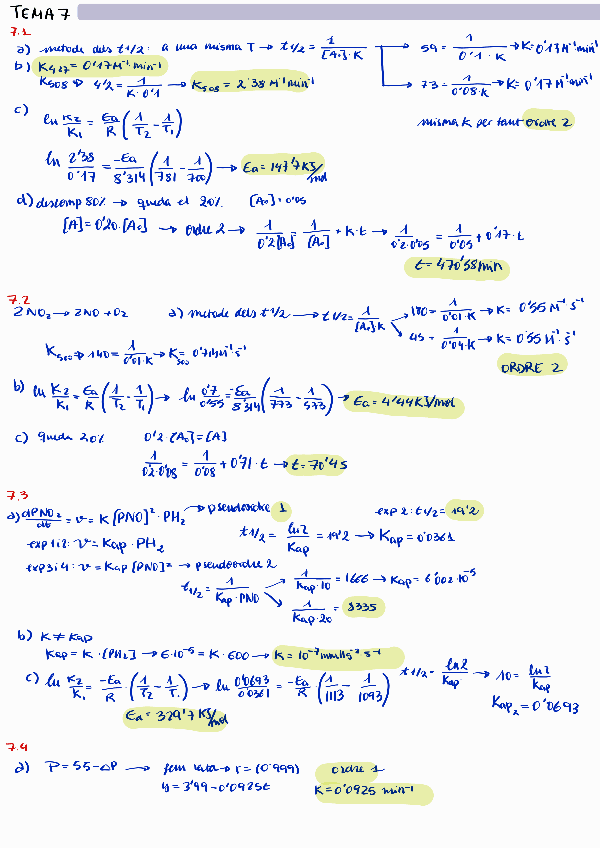 TEMA 7
7.1
a) metode dels t1/2 : a una misma T → t1/2 = 1/([A₀]·K) → 59 = 1/(0'1·K) → K = 0'17 M⁻¹ min⁻¹
→ 73 = 1/(0'08·K) → K = 0'17 M⁻¹ min⁻¹
misma K per tant ordre 2
b) K₄₂₇ = 0'17 M⁻¹ min⁻¹
K₅₀₈ → 4'2 = 1/(K·0'1) → K₅₀₈ = 2'38 M⁻¹ min⁻¹
c)
ln K₂/K₁ = Ea/R (1/T₂ − 1/T₁)
ln 2'38/0'17 = −Ea/8'314 (1/781 − 1/700) → Ea = 147'7 KJ/mol
d) descomp 80% → queda el 20% [A₀] = 0'05
[A] = 0'20·[A₀] → ordre 2 → 1/(0'2[A₀]) = 1/[A₀] + K·t → 1/(0'2·0'05) = 1/0'05 + 0'17·t
t = 470'58 min
7.2
2NO₂ → 2NO + O₂ a) metode dels t1/2 → t1/2 = 1/([A₀]·K) → 180 = 1/(0'01·K) → K = 0'55 M⁻¹ s⁻¹
→ 45 = 1/(0'04·K) → K = 0'55 M⁻¹ s⁻¹
K₅₀₀ → 140 = 1/(0'01·K) → K₅₀₀ = 0'71 M⁻¹ s⁻¹
ORDRE 2
b) ln K₂/K₁ = Ea/R (1/T₂ − 1/T₁) → ln 0'7/0'55 = −Ea/8'314 (1/773 − 1/573) → Ea = 4'44 KJ/mol
c) Queda 20% 0'2·[A₀] = [A]
1/(0'2·0'08) = 1/0'08 + 0'71·t → t = 70'4 s
7.3
a) dPNO₂/dt = v = K [PNO]²·PH₂ → pseudoordre 1 exp 2: t1/2 = 19'2
exp 1 i 2: v = Kap·PH₂ t1/2 = ln2/Kap = 19'2 → Kap = 0'0361
exp 3 i 4: v = Kap [PNO]² → pseudoordre 2
t1/2 = 1/(Kap·PNO) → 1/(Kap·10) = 1666 → Kap = 6'002·10⁻⁵
→ 1/(Kap·20) = 8335
b) K ≠ Kap
Kap = K·[PH₂] → 6·10⁻⁵ = K·600 → K = 10⁻⁷ mmHg⁻² s⁻¹
c) ln K₂/K₁ = −Ea/R · (1/T₂ − 1/T₁) → ln 0'0693/0'0361 = −Ea/R (1/1113 − 1/1093) t1/2 = ln2/Kap → 10 = ln2/Kap
Kap₂ = 0'0693
Ea = 329'7 KJ/mol
7.4
a) P = 55 − ΔP → r = (0'999) Ordre 1
y = 3'99 − 0'0925t K = 0'0925 min⁻¹